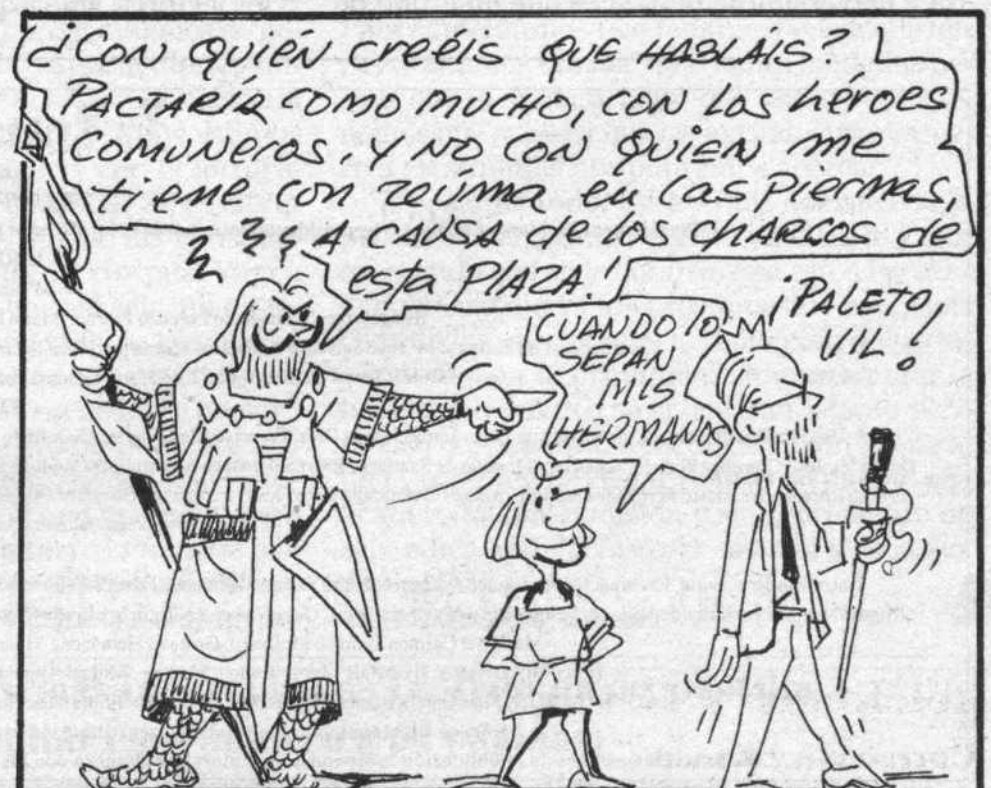 ¿CON QUIÉN CREÉIS QUE HABLAIS?
PACTARÍA COMO MUCHO, CON LOS héroes
COMUNEROS, Y NO CON QUIEN me
tiene con reúma en Las Piernas,
A CAUSA de los CHARCOS de
esta PLAZA!
¡CUANDO lo
SEPAN
MIS
HERMANOS
¡PALETO
VIL!